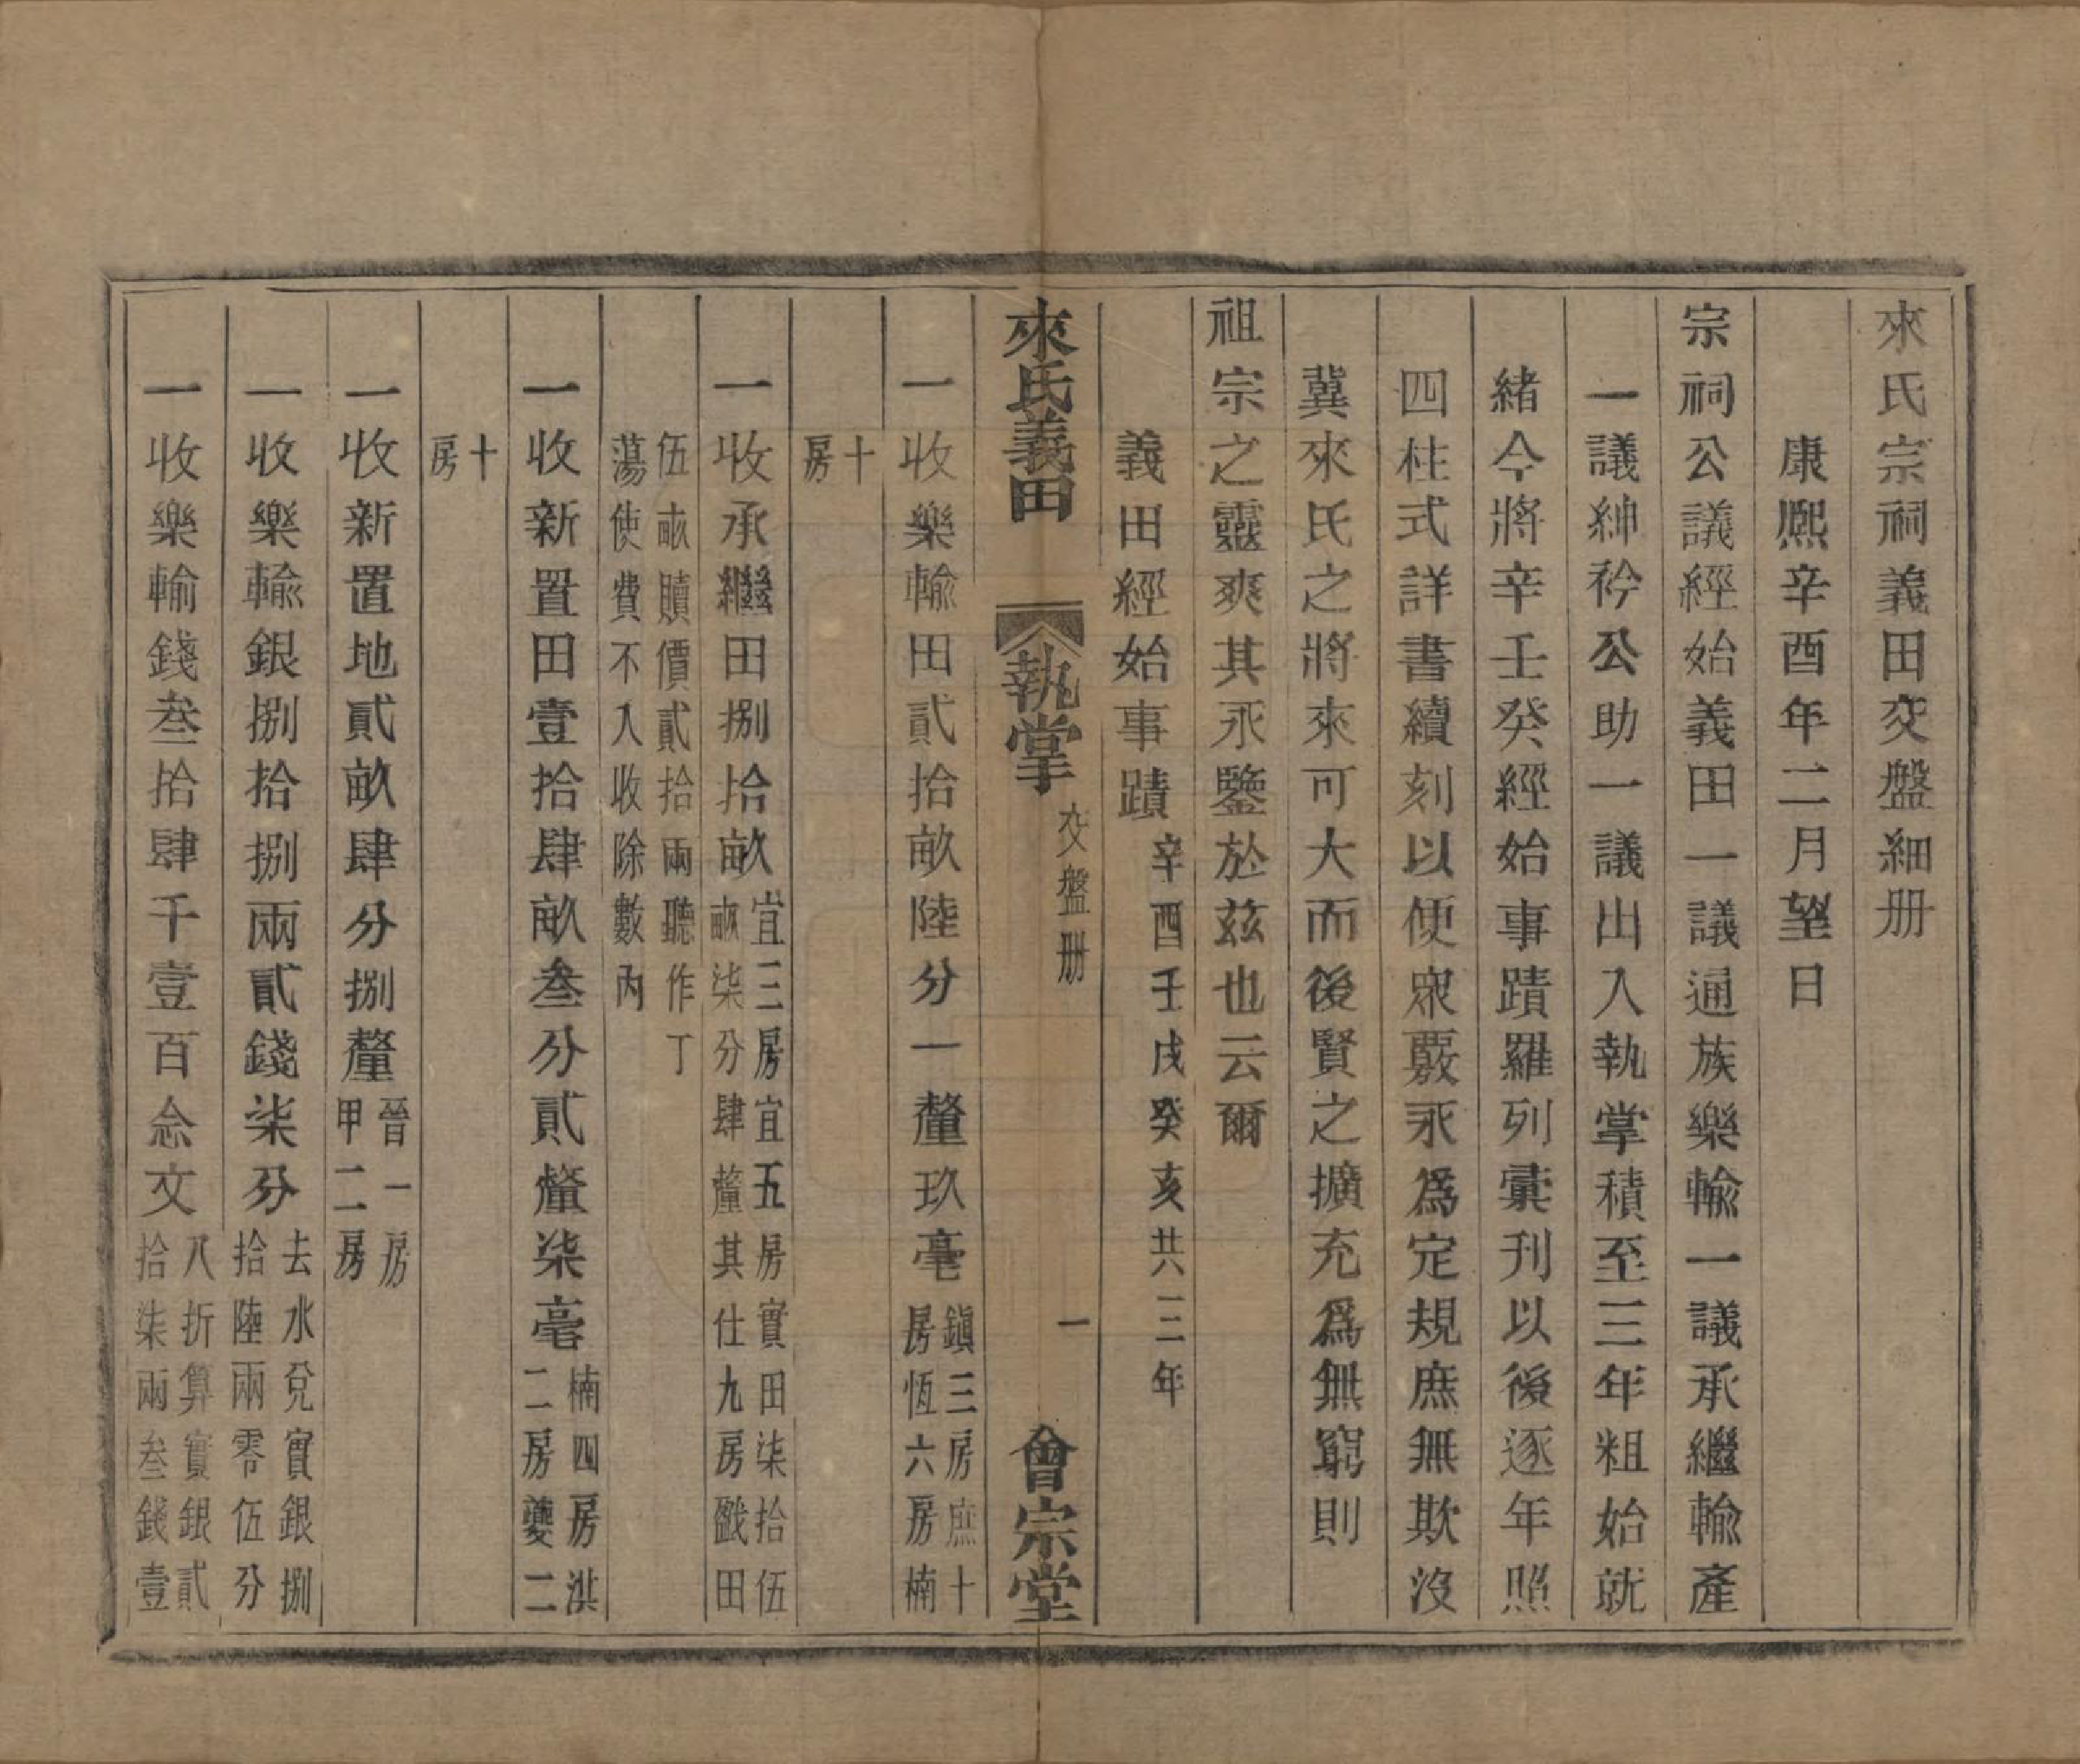 來氏宗祠義田交盤細册
康熈辛酉年二月望日
宗祠公議經始義田一議通族樂輸一議承繼輸產
一議紳衿公助一議出入執掌積至三年粗始就
緒今將辛壬癸經始事蹟羅列彙刊以後逐年照
四柱式詳書續刻以便衆覈永爲定規庶無欺没
冀來氏之將來可大而後賢之擴充爲無窮則
祖宗之靈爽其永鑒於兹也云爾
義田經始事蹟辛酉壬戌癸亥共三年
來氏義田 執掌 交盤册 一 會宗堂
一收樂輸田貳拾畝陸分一釐玖毫鎭三房庶十
房恆六房楠
十
房
一收承繼田捌拾畝宜三房宜五房實田柒拾伍
畝柒分肆釐其仕九房戤田
伍畝贖價貳拾兩聽作丁
蕩使費不入收除數内
一收新置田壹拾肆畝叁分貳釐柒毫楠四房洪
二房夔二
十
房
一收新置地貳畝肆分捌釐晉一房
甲二房
一收樂輸銀捌拾捌兩貳錢柒分去水兌實銀捌
拾陸兩零伍分
一收樂輸錢叁拾肆千壹百念文八折算實銀貳
拾柒兩叁錢壹